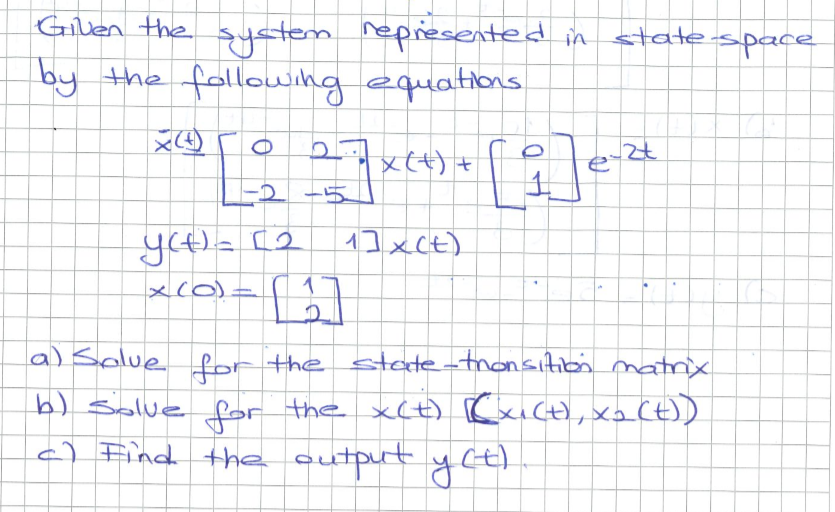 Given the system represented in state-space
by the following equations
ẋ(t) = [ 0 2 ; -2 -5 ] x(t) + [ 0 ; 1 ] e^-2t
y(t) = [2 1] x(t)
x(0) = [ 1 ; 2 ]
a) Solve for the state-transition matrix
b) Solve for the x(t) (x₁(t), x₂(t))
c) Find the output y(t).